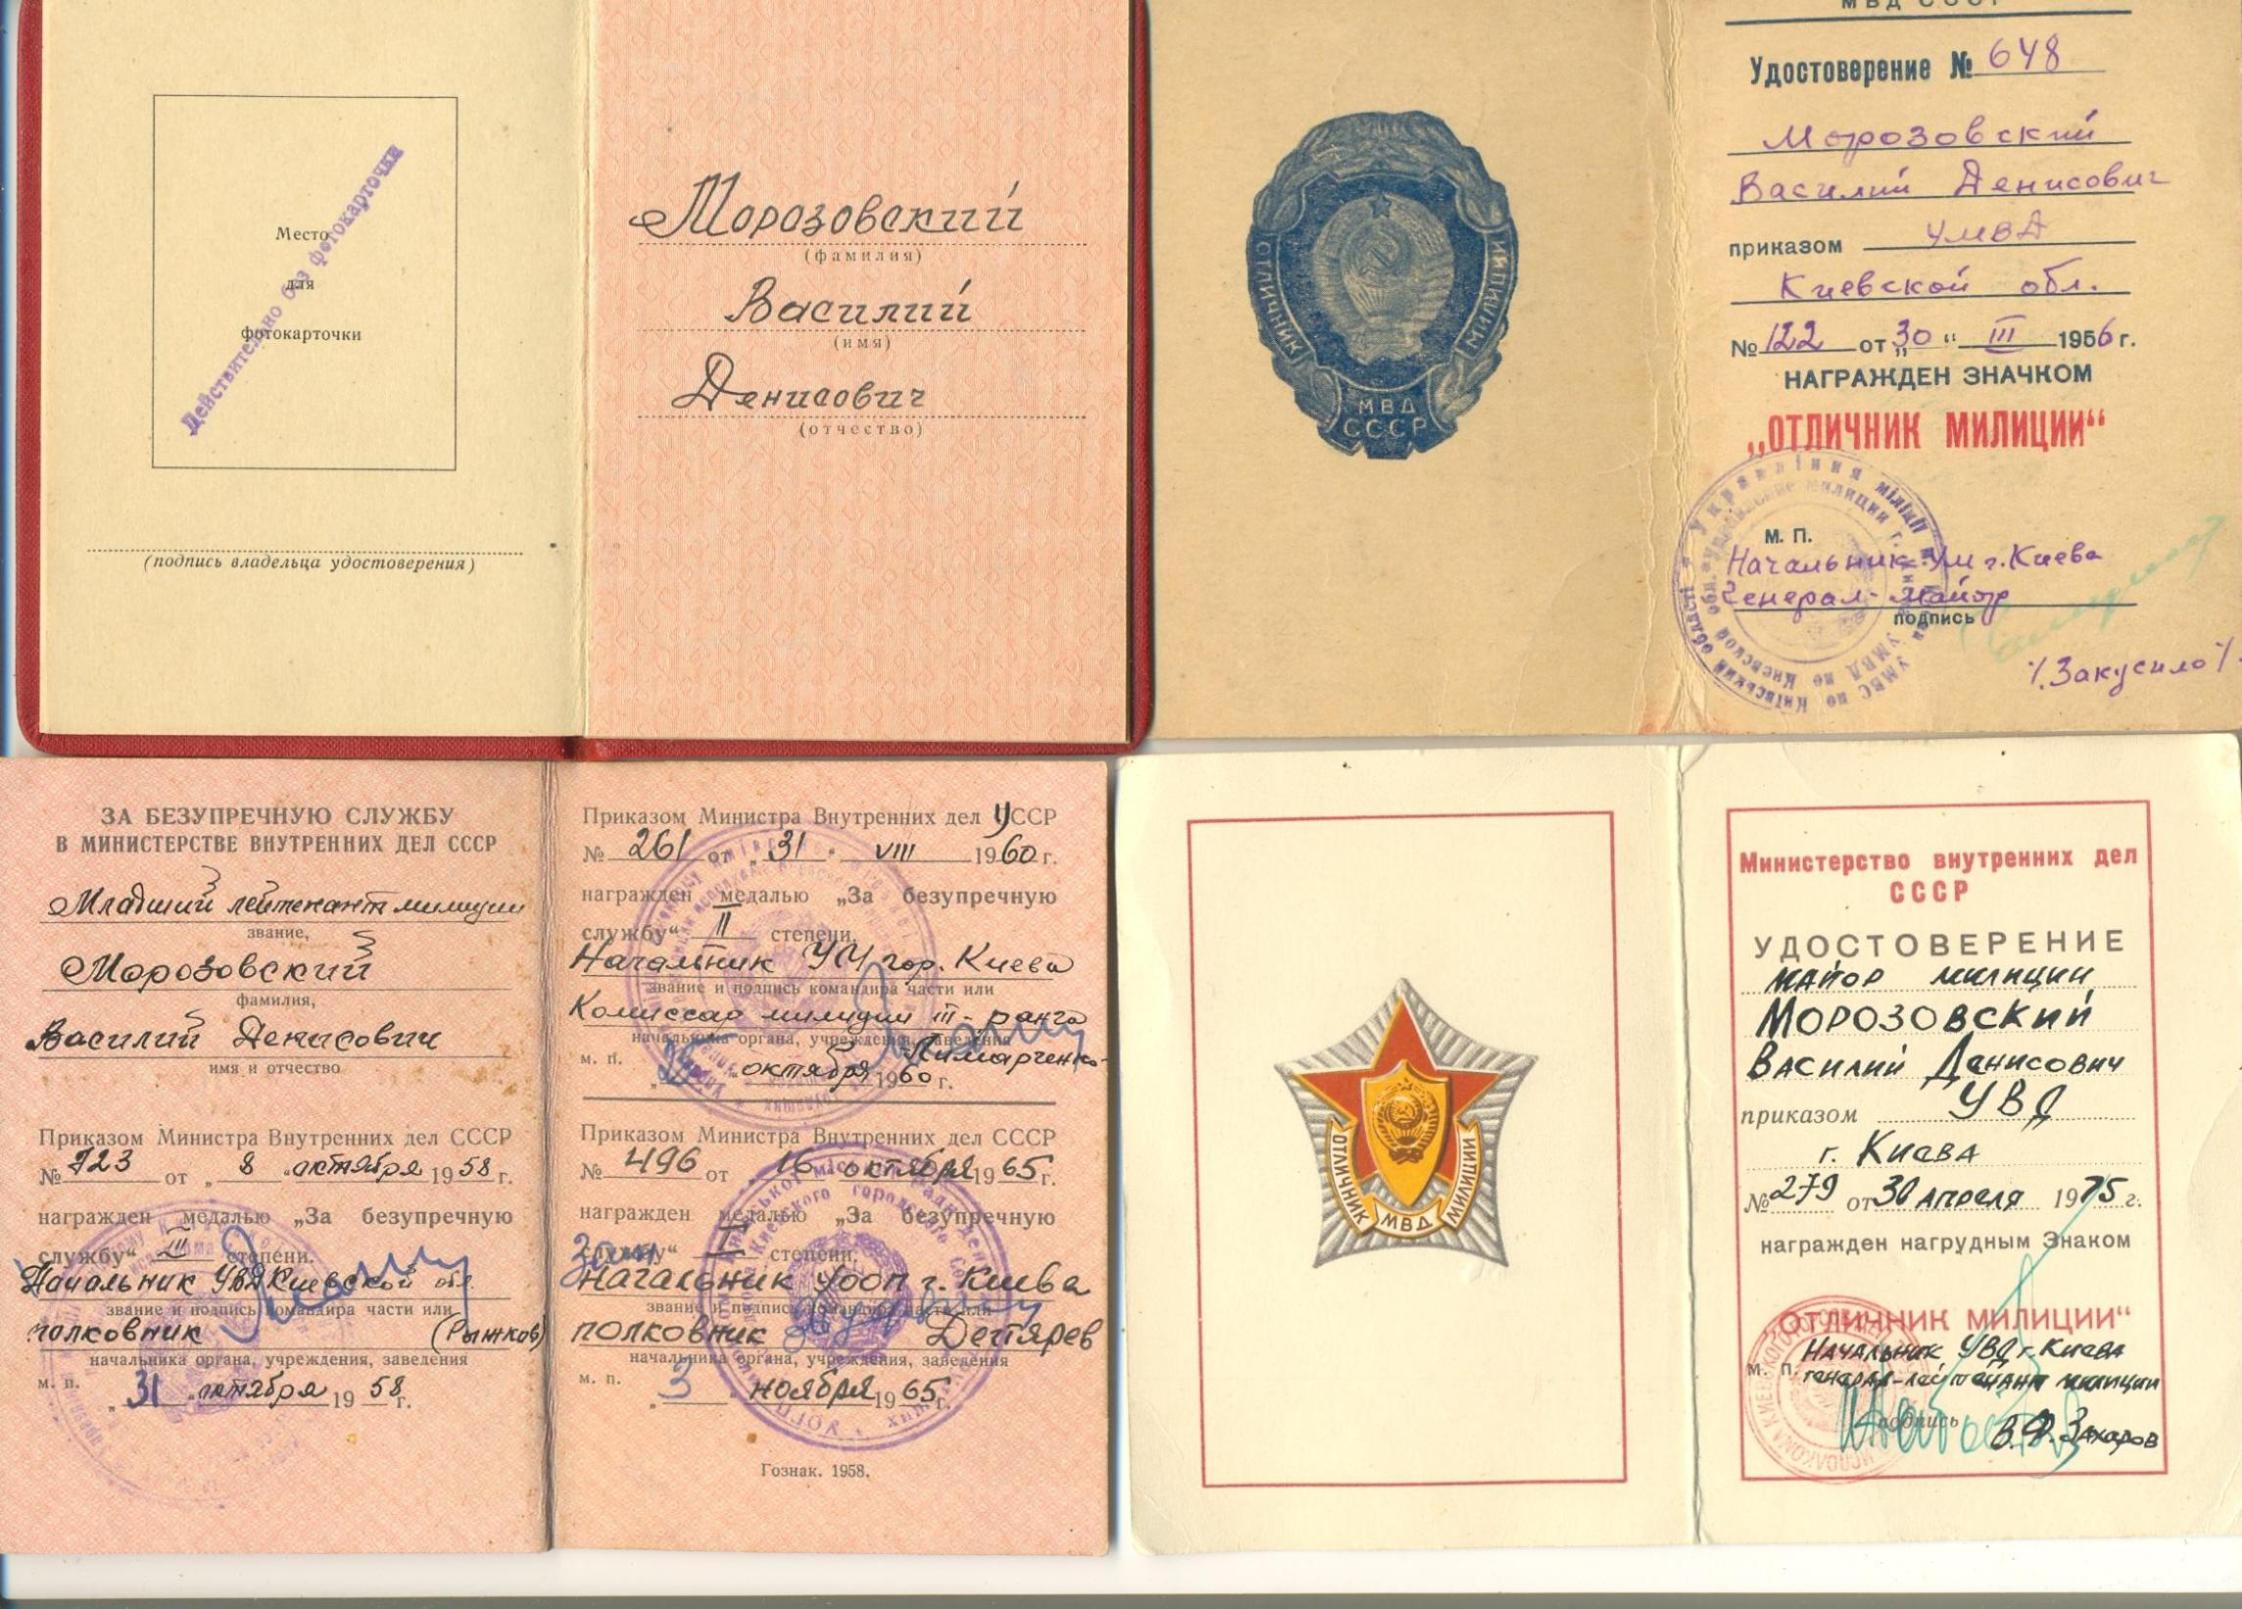 Место
для
фотокарточки
Действительно без фотокарточки
(подпись владельца удостоверения)
Морозовский
(фамилия)
Василий
(имя)
Денисович
(отчество)
ОТЛИЧНИК МИЛИЦИИ
МВД
СССР
МВД СССР
Удостоверение № 648
Морозовский
Василий Денисович
приказом УМВД
Киевской обл.
№ 122 от „30“ III 1956 г.
НАГРАЖДЕН ЗНАЧКОМ
„ОТЛИЧНИК МИЛИЦИИ“
М. П.
Начальник УМ г. Киева
Генерал-майор
подпись
/Закусило/
ЗА БЕЗУПРЕЧНУЮ СЛУЖБУ
В МИНИСТЕРСТВЕ ВНУТРЕННИХ ДЕЛ СССР
Младший лейтенант милиции
звание,
Морозовский
фамилия,
Василий Денисович
имя и отчество
Приказом Министра Внутренних дел СССР
№ 723 от „8“ октября 1958 г.
награжден медалью „За безупречную
службу“ III степени.
Начальник УВД Киевской обл
звание и подпись командира части или
полковник (Рыжков)
начальника органа, учреждения, заведения
м. п.
„31“ октября 1958 г.
Приказом Министра Внутренних дел УССР
№ 261 от „31“ VIII 1960 г.
награжден медалью „За безупречную
службу“ II степени.
Начальник УМ гор. Киева
звание и подпись командира части или
Комиссар милиции III-ранга
начальника органа, учреждения, заведения
м. п.
октября 1960 г.
Приказом Министра Внутренних дел СССР
№ 496 от 16 октября 1965 г.
награжден медалью „За безупречную
службу“ I степени.
Зам
начальник УООП г. Киева
звание и подпись командира части или
полковник Дегтярев
начальника органа, учреждения, заведения
м. п.
„3“ ноября 1965 г.
Гознак. 1958.
ОТЛИЧНИК МВД МИЛИЦИИ
Министерство внутренних дел
СССР
УДОСТОВЕРЕНИЕ
майор милиции
Морозовский
Василий Денисович
приказом УВД
г. Киева
№ 279 от 30 апреля 1975 г.
награжден нагрудным Знаком
"ОТЛИЧНИК МИЛИЦИИ"
Начальник УВД г. Киева
м. п. генерал-лейтенант милиции
подпись
В.Ф. Захаров